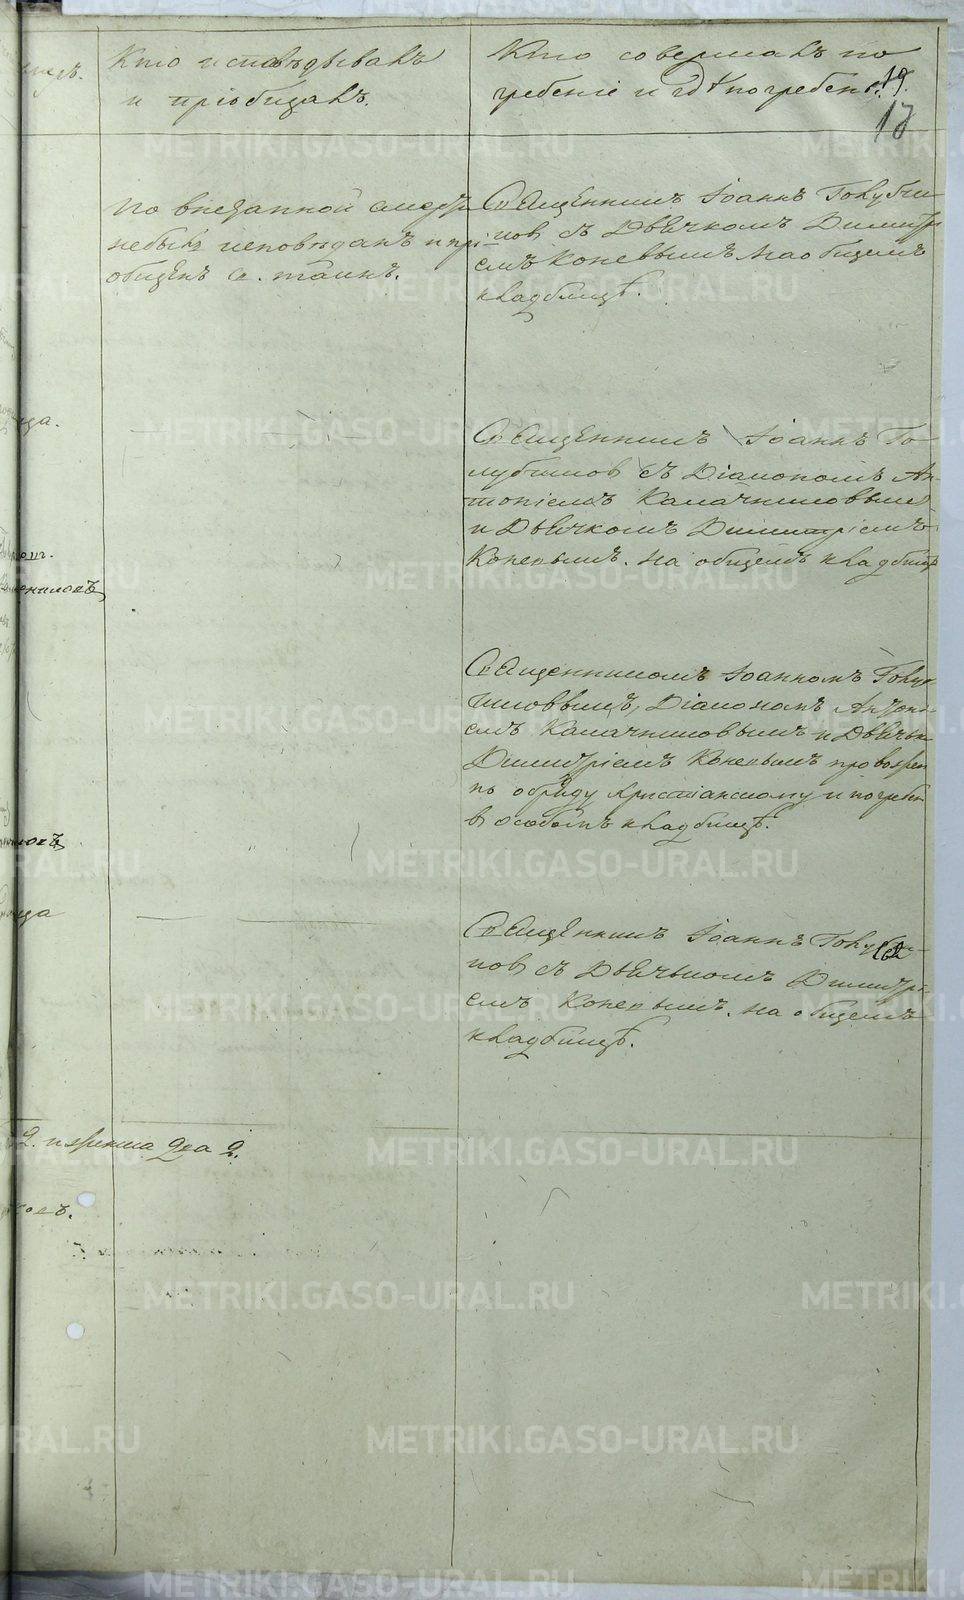 Кто исповѣдывалъ
и пріобщалъ.
Кто совершалъ по
гребеніе и гдѣ погребены.
19.
17
По внезапной смерти
небылъ исповѣданъ и прі
общенъ св. таинъ.
Священникъ Іоаннъ Голубчи
ковъ съ Дьячкомъ Димитрі
емъ Коневымъ. На общемъ
кладбищѣ.
Священникъ Іоаннъ Го-
лубчиковъ съ Діакономъ Ан-
тоніемъ Калачниковымъ
и Дьячкомъ Димитріемъ
Коневымъ. На общемъ кладбищѣ
Священникомъ Іоанномъ Голуб
чиковымъ, Діакономъ Антоні-
емъ Калачниковымъ и Дьячком
Димитріемъ Коневымъ
по обряду Христіанскому и погребен
въ особомъ кладбищѣ.
Священникъ Іоаннъ Голубчи-
ковъ съ Дьячькомъ Димитрі-
емъ Коневымъ. На общемъ
кладбищѣ.
2. и женска два 2.
METRIKI.GASO-URAL.RU